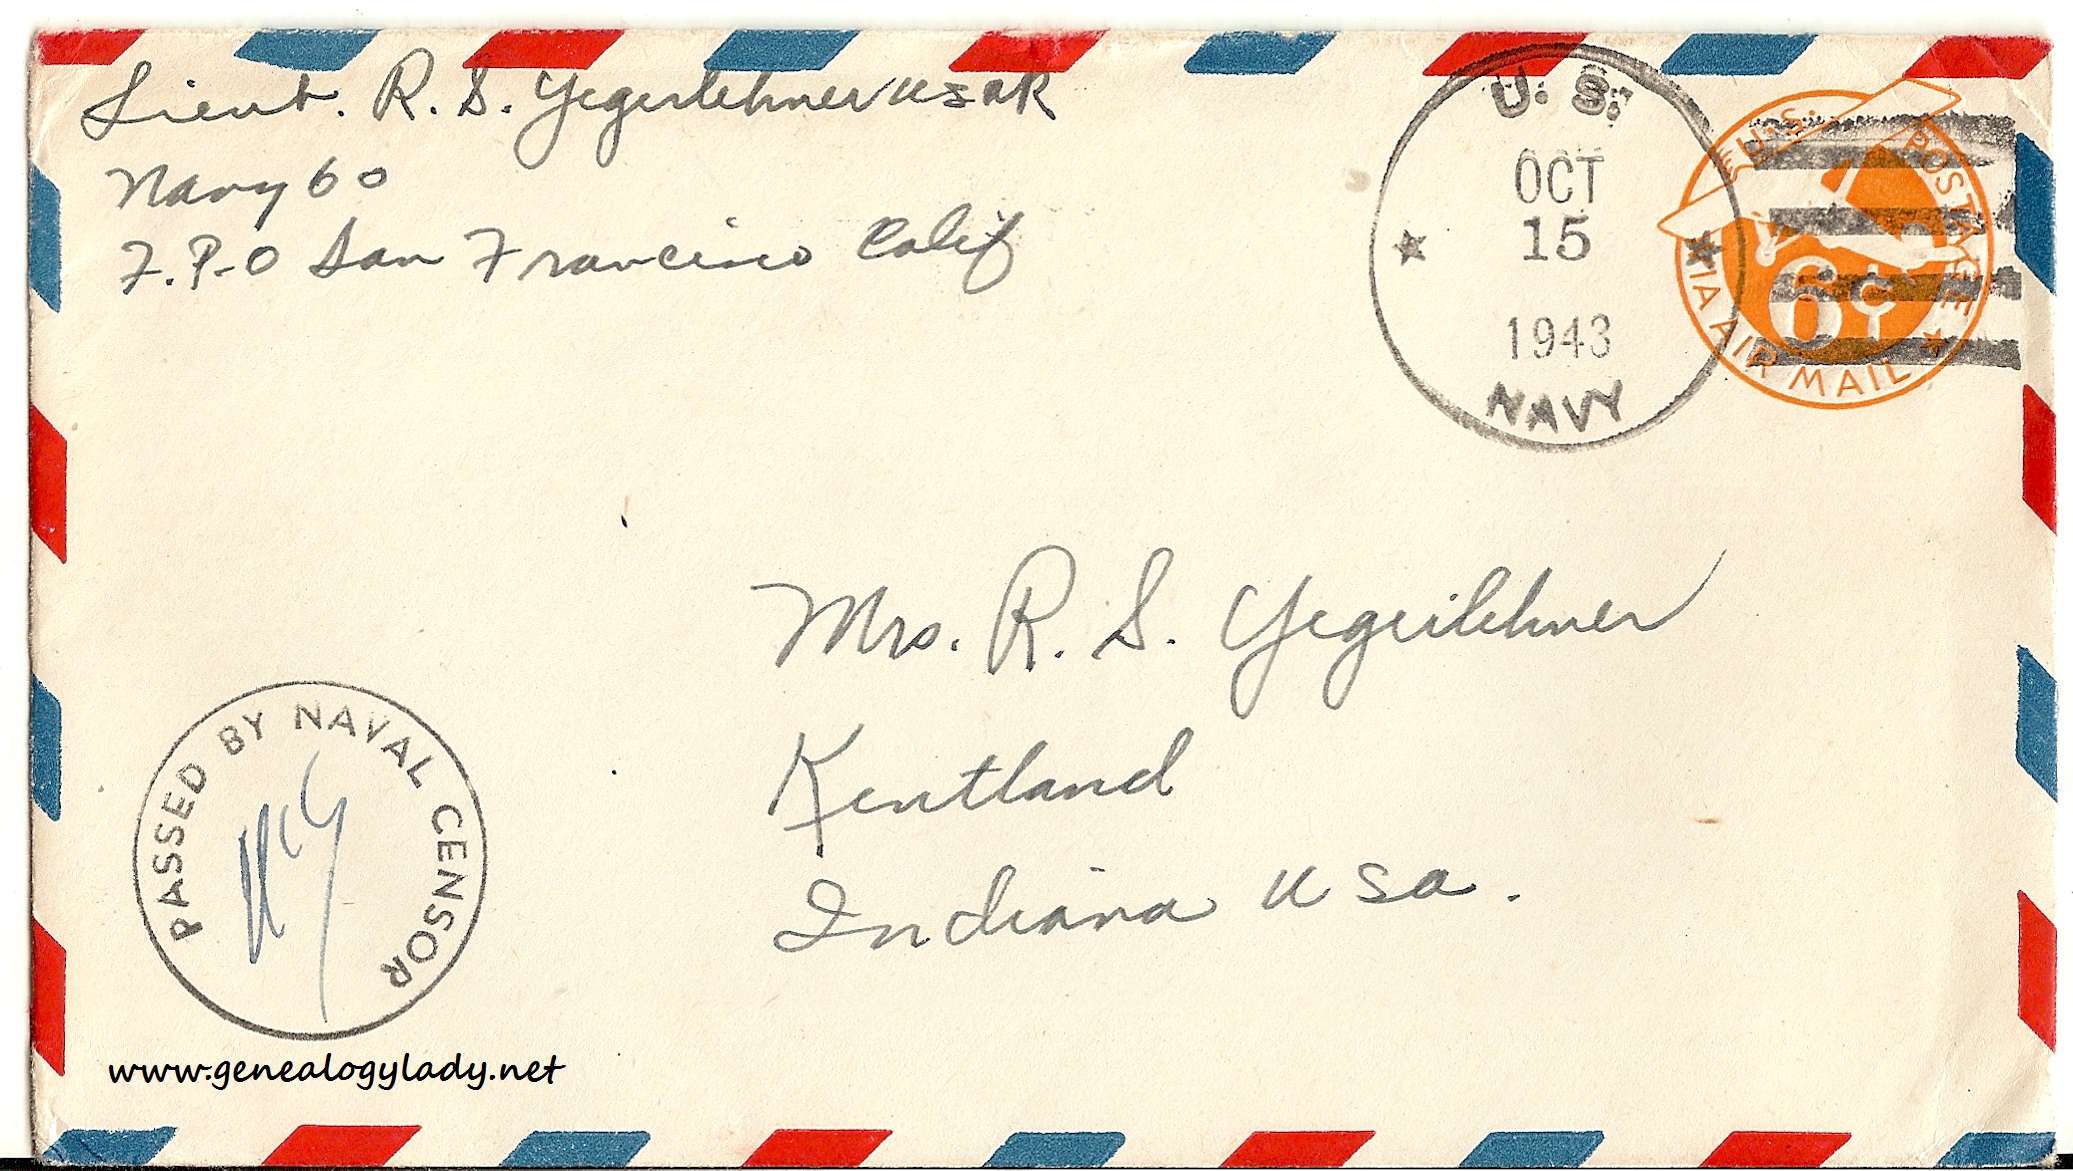 Lieut. R. S. Yegerlehner USNR
Navy 60
F.P.O San Francisco Calif
U. S.
OCT
15
1943
NAVY
U.S. POSTAGE
6¢
VIA AIR MAIL
Mrs. R. S. Yegerlehner
Kentland
Indiana USA.
PASSED BY NAVAL CENSOR
www.genealogylady.net